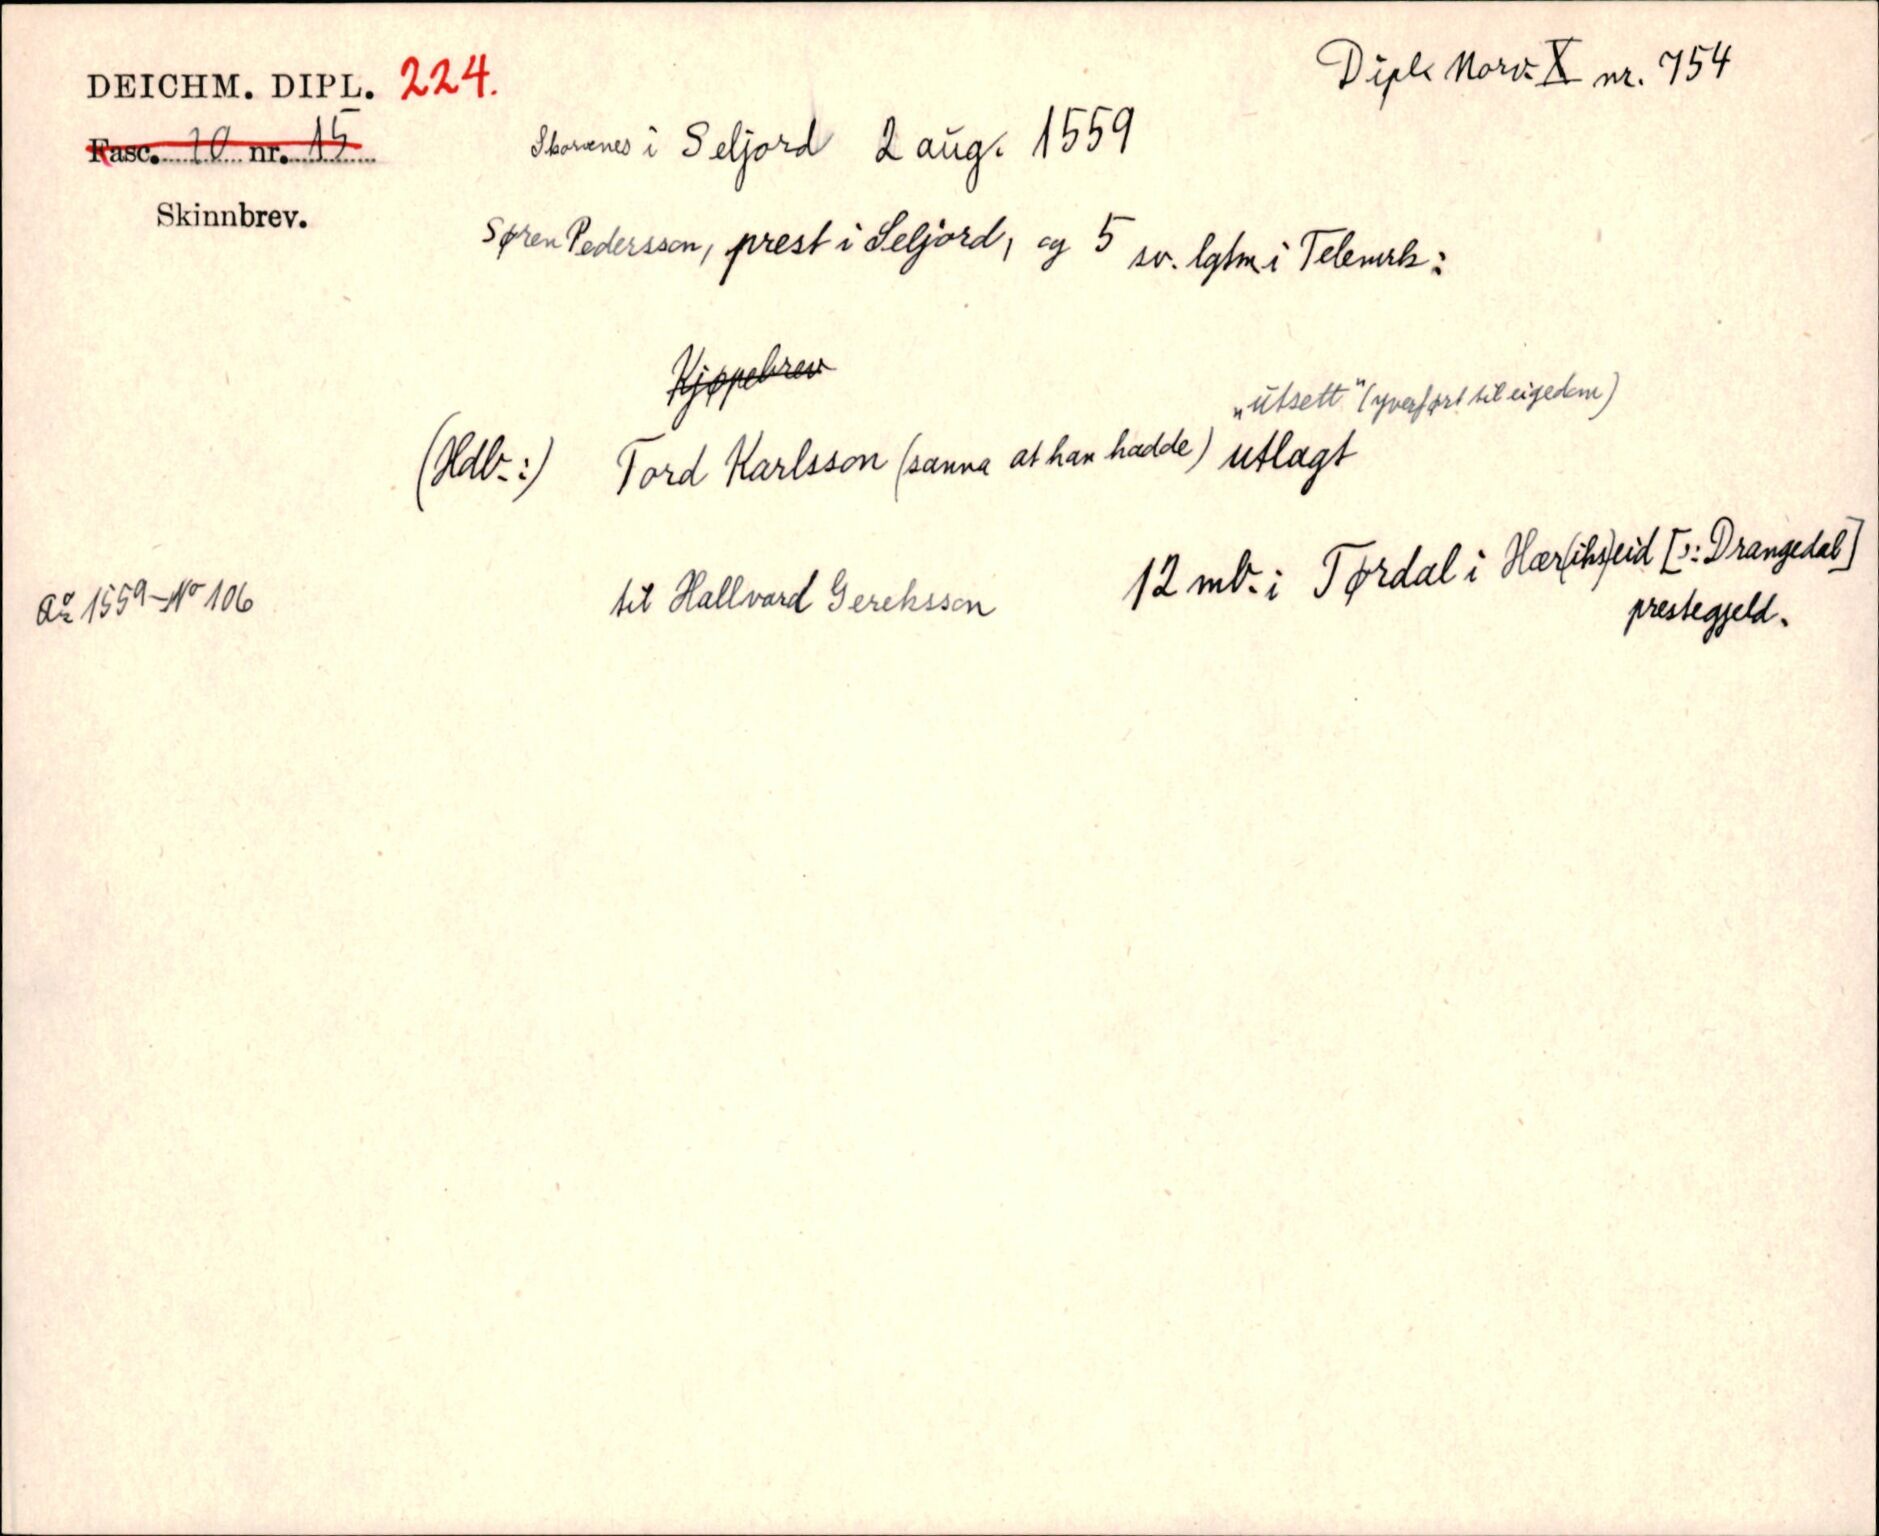 DEICHM. DIPL. 224.
Dipl. Norv. X nr. 754
Fasc. 10 nr. 15
Skorvenes i Seljord 2 aug. 1559
Skinnbrev.
Søren Pedersson, prest i Seljord, og 5 sv. lgtm i Telemrk:
Kjøpebrev
"utsett" (yverført til eigedom)
(Hdb.:) Tord Karlsson (sanna at han hadde) utlagt
Ao 1559 - No 106 til Hallvard Gereksson 12 mb. i Tørdal i Hær(iks)eid [ɔ: Drangedal]
prestegjeld.